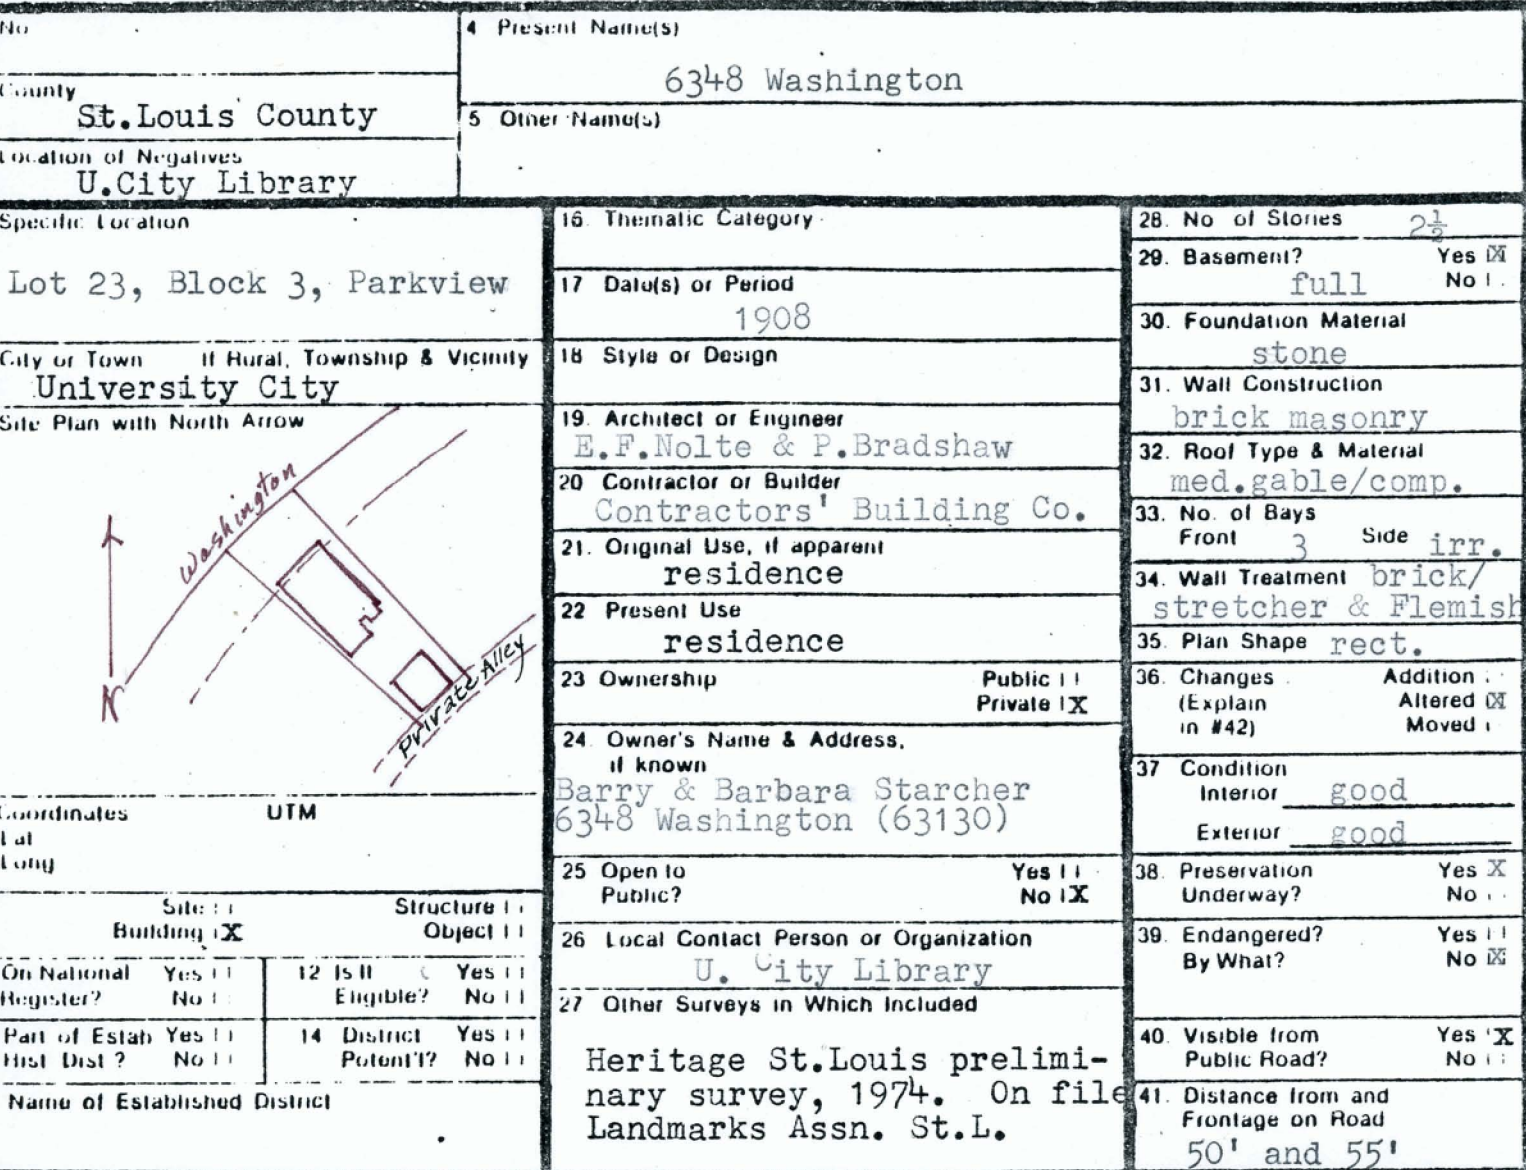 No
County
St.Louis County
Location of Negatives
U.City Library
4 Present Name(s)
6348 Washington
5 Other Name(s)
Specific Location
Lot 23, Block 3, Parkview
City or Town If Rural, Township & Vicinity
University City
Site Plan with North Arrow
Washington
N
Private Alley
Coordinates UTM
Lat
Long
Site Structure
Building X Object
On National Register? Yes No
12 Is It Eligible? Yes No
Part of Estab Hist Dist? Yes No
14 District Potent'l? Yes No
Name of Established District
16. Thematic Category
17 Date(s) or Period
1908
18 Style or Design
19. Architect or Engineer
E.F.Nolte & P.Bradshaw
20 Contractor or Builder
Contractors' Building Co.
21. Original Use, if apparent
residence
22 Present Use
residence
23 Ownership Public
Private X
24 Owner's Name & Address,
if known
Barry & Barbara Starcher
6348 Washington (63130)
25 Open to Yes
Public? No X
26 Local Contact Person or Organization
U. City Library
27 Other Surveys in Which Included
Heritage St.Louis prelimi-
nary survey, 1974. On file
Landmarks Assn. St.L.
28. No of Stories 2½
29. Basement? Yes X
full No
30. Foundation Material
stone
31. Wall Construction
brick masonry
32. Roof Type & Material
med.gable/comp.
33. No. of Bays
Front 3 Side irr.
34. Wall Treatment brick/
stretcher & Flemish
35. Plan Shape rect.
36. Changes Addition
(Explain Altered X
in #42) Moved
37 Condition
Interior good
Exterior good
38. Preservation Yes X
Underway? No
39. Endangered? Yes
By What? No X
40. Visible from Yes X
Public Road? No
41. Distance from and
Frontage on Road
50' and 55'